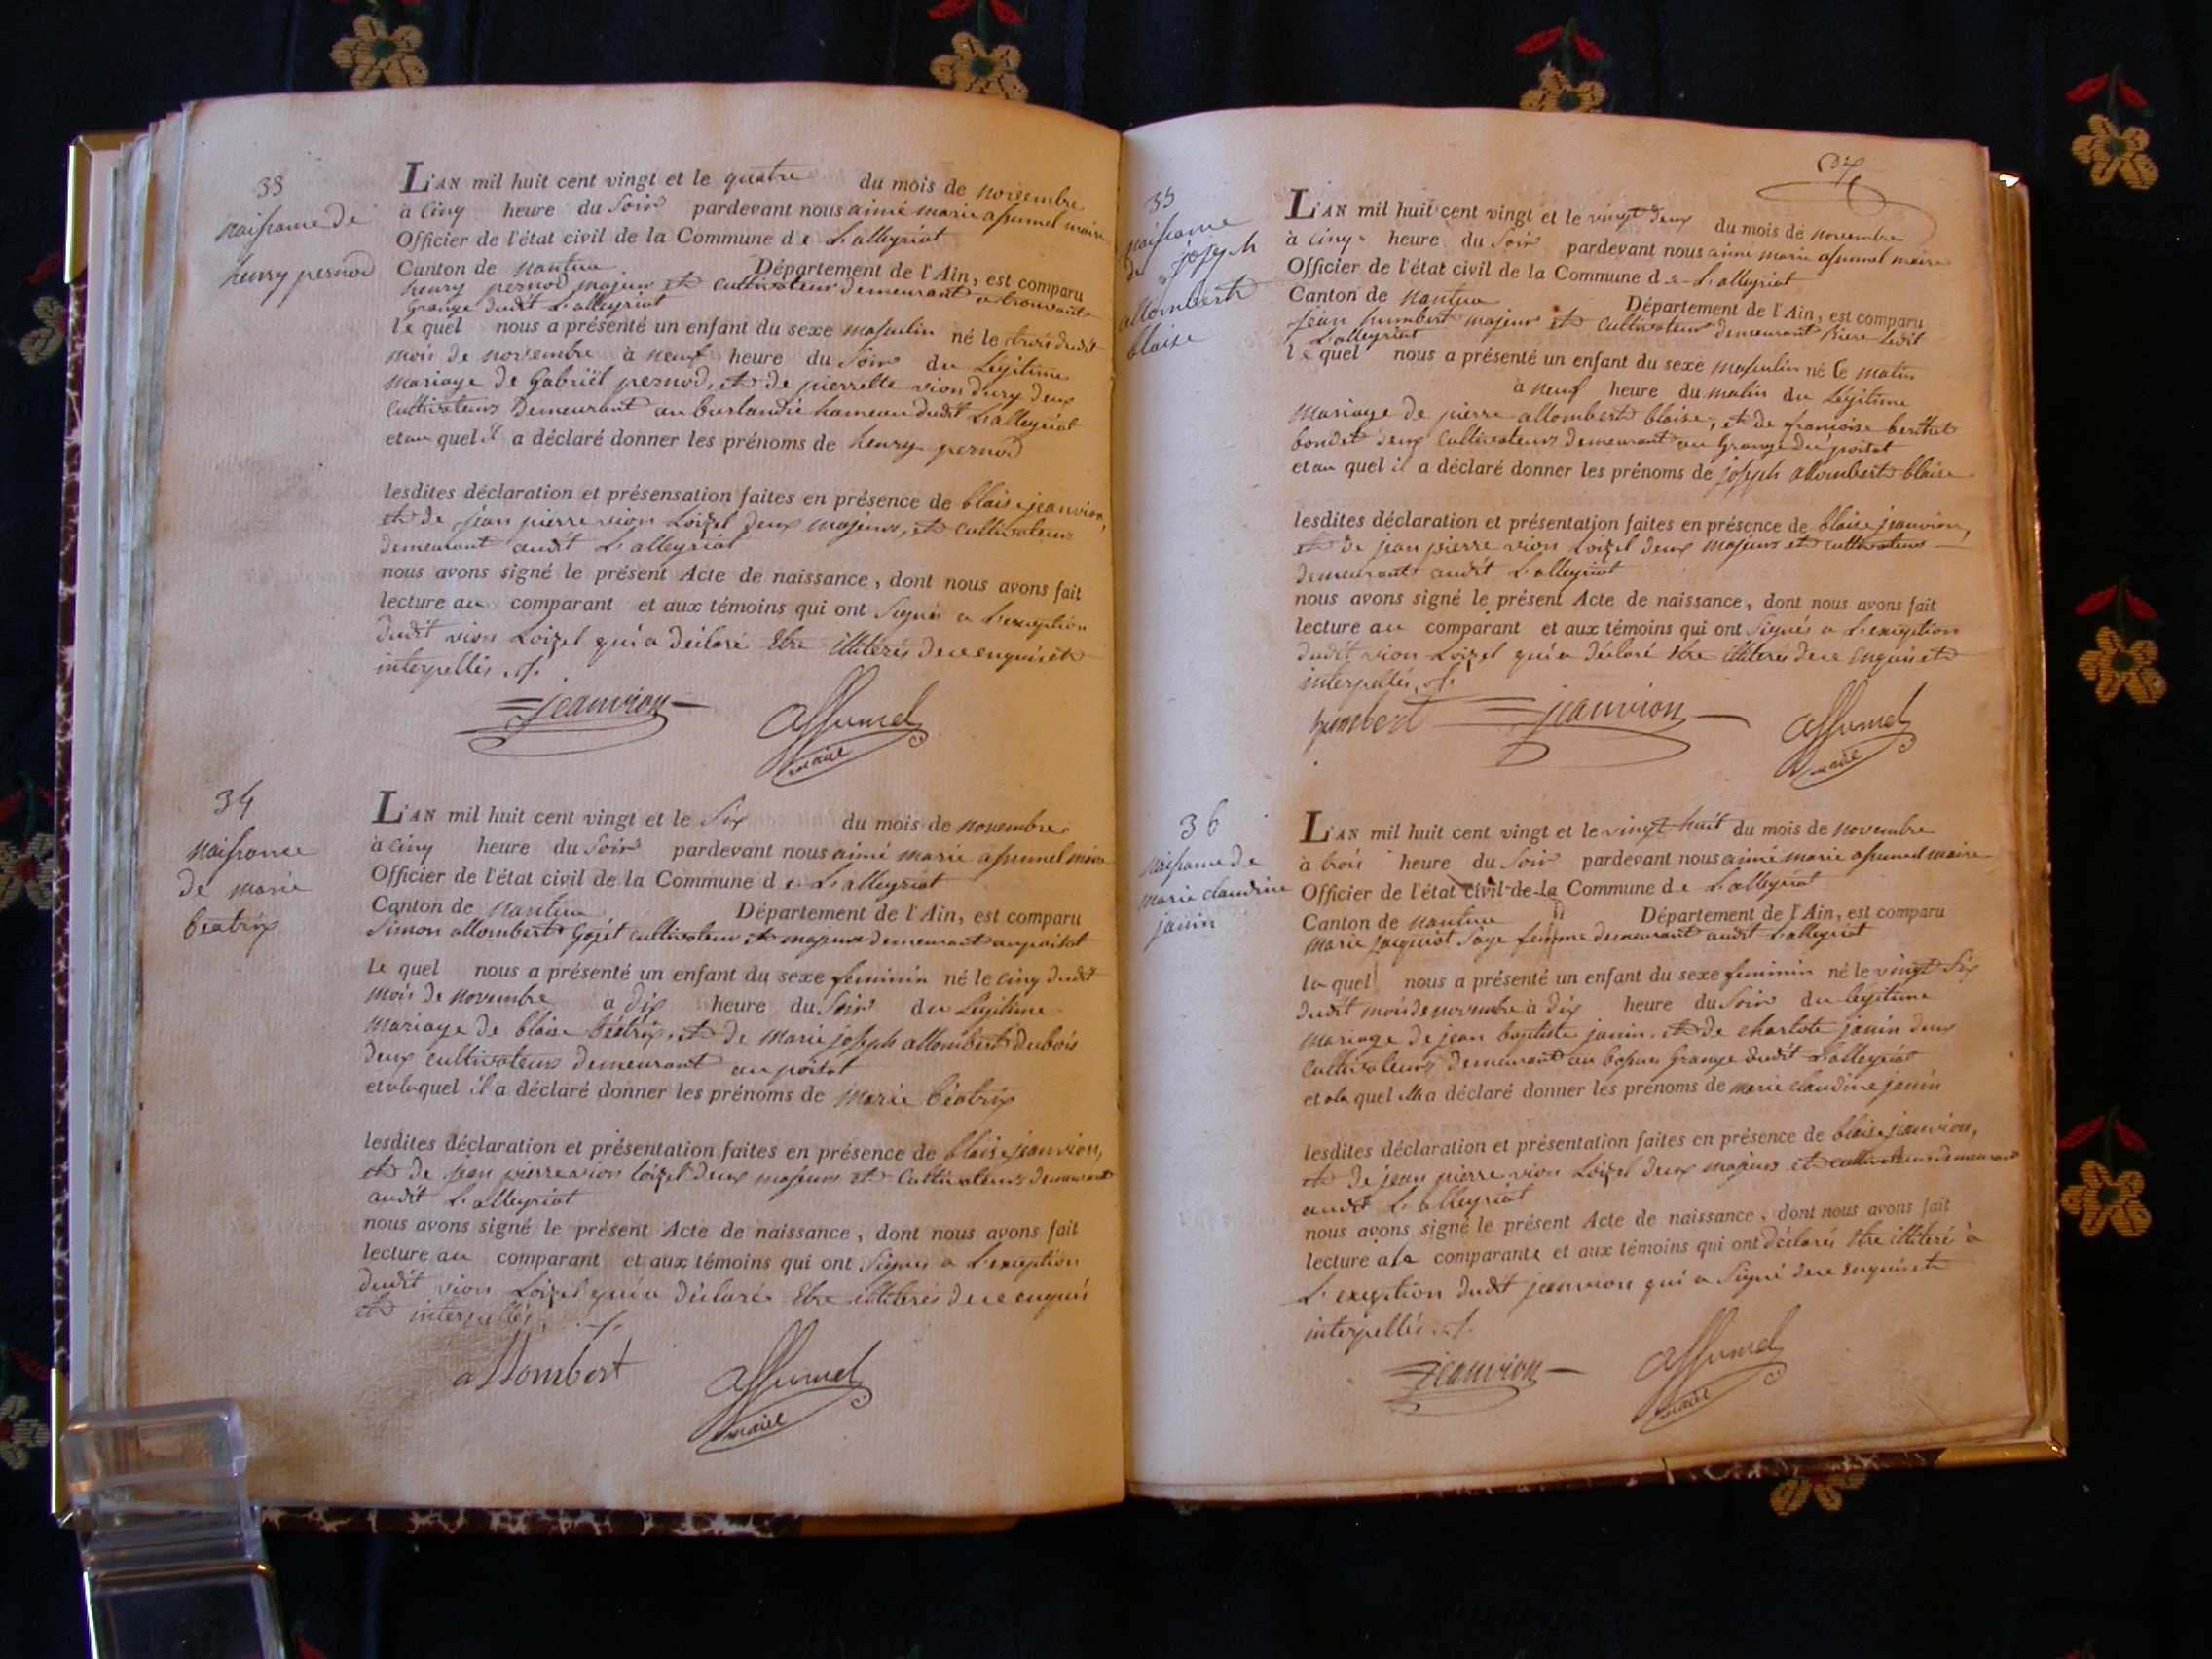 33
naissance de
henry pernod
L'AN mil huit cent vingt et le quatre du mois de novembre
à cinq heure du soir pardevant nous aimé marie assumel maire
Officier de l'état civil de la Commune de L'alleyriat
Canton de nantua Département de l'Ain, est comparu
henry pernod majeur et cultivateur demeurant a trouvant
Grange dudit L'alleyriat
lequel nous a présenté un enfant du sexe masculin né le trois dudit
mois de novembre à neuf heure du soir du Légitime
mariage de Gabriël pernod, et de pierrette vion dury deux
cultivateurs demeurant au burlandié hameau dudit L'alleyriat
et au quel il a déclaré donner les prénoms de henry pernod
lesdites déclaration et présensation faites en présence de blaise jeanvion,
et de jean pierre vion Loizel deux majeurs, et cultivateurs
demeurant audit L'alleyriat
nous avons signé le présent Acte de naissance, dont nous avons fait
lecture au comparant et aux témoins qui ont signés a L'exception
dudit vion Loizel qui a déclaré être illiterés de ce enquis et
interpellés ./.
jeanvion assumel
maire
34
naissance
de marie
béatrix
L'AN mil huit cent vingt et le six du mois de novembre
à cinq heure du soir pardevant nous aimé marie assumel maire
Officier de l'état civil de la Commune de L'alleyriat
Canton de nantua Département de l'Ain, est comparu
simon allombert Gojët cultivateur et majeur demeurant au poizat
Le quel nous a présenté un enfant du sexe feminin né le cinq dudit
mois de novembre à dix heure du soir du Légitime
mariage de blaise béatrix, et de marie joseph allombert dubois
deux cultivateurs demeurant au poizat
et a laquel il a déclaré donner les prénoms de marie béatrix
lesdites déclaration et présentation faites en présence de blaise jeanvion,
et de jean pierre vion loizel deux majeurs et cultivateurs demeurant
audit L'alleyriat
nous avons signé le présent Acte de naissance, dont nous avons fait
lecture au comparant et aux témoins qui ont signés a L'exception
dudit vion Loizel qui a déclaré être illiterés de ce enquis
et interpellés, ./.
allombert assumel
maire
dix
35
naissance
de joseph
allombert
blaise
L'AN mil huit cent vingt et le vingt deux du mois de novembre
à cinq heure du soir pardevant nous aimé marie assumel maire
Officier de l'état civil de la Commune de L'alleyriat
Canton de nantua Département de l'Ain, est comparu
jean humbert majeur et cultivateur demeurant riere Ledit
L'alleyriat
lequel nous a présenté un enfant du sexe masculin né le matin
à neuf heure du matin du Légitime
mariage de pierre allombert blaise, et de francoise berthet
bondet deux cultivateurs demeurant au Grange du poizat
et au quel il a déclaré donner les prénoms de joseph allombert blaise
lesdites déclaration et présentation faites en présence de blaise jeanvion,
et de jean pierre vion Loizel deux majeurs et cultivateurs
demeurant audit L'alleyriat
nous avons signé le présent Acte de naissance, dont nous avons fait
lecture au comparant et aux témoins qui ont signés a L'exception
dudit vion Loizel qui a déclaré être illiterés de ce enquis et
interpellés, ./.
humbert jeanvion assumel
maire
36
naissance de
marie claudine
janin
L'AN mil huit cent vingt et le vingt huit du mois de novembre
à trois heure du soir pardevant nous aimé marie assumel maire
Officier de l'état civil de la Commune de L'alleyriat
Canton de nantua Département de l'Ain, est comparu
marie jacquiot sage femme demeurant audit L'alleyriat
laquel nous a présenté un enfant du sexe feminin né le vingt six
dudit mois de novembre à dix heure du soir du légitime
mariage de jean baptiste janin, et de charlote janin deux
cultivateurs demeurant au Grange dudit L'alleyriat
et a la quel elle a déclaré donner les prénoms de marie claudine janin
lesdites déclaration et présentation faites en présence de blaise jeanvion,
et de jean pierre vion Loizel deux majeurs et cultivateurs demeurant
audit L'alleyriat
nous avons signé le présent Acte de naissance, dont nous avons fait
lecture a la comparante et aux témoins qui ont déclarés être illiteré à
L'exception dudit jeanvion qui a signé de ce enquis et
interpellés ./.
jeanvion assumel
maire